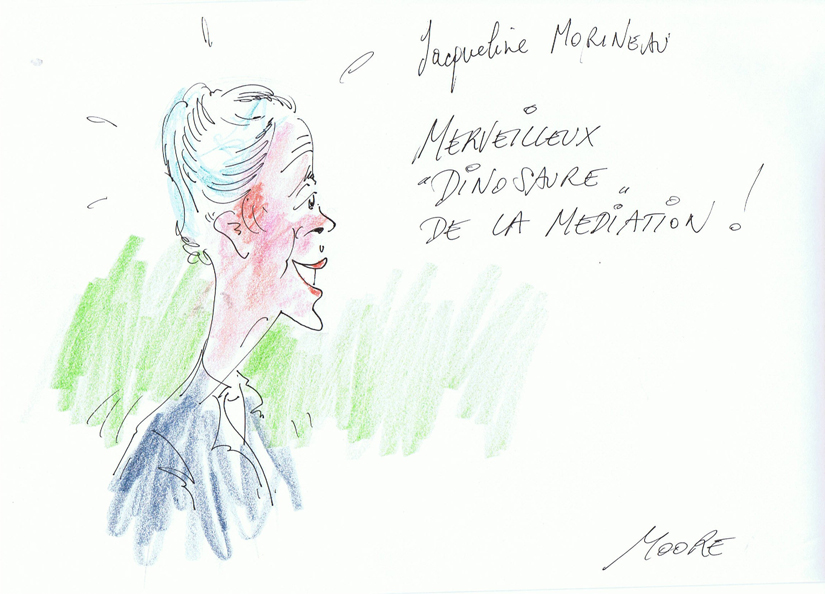 Jacqueline MORINEAU
MERVEILLEUX
"DINOSAURE"
DE LA MEDIATION !
MOORE